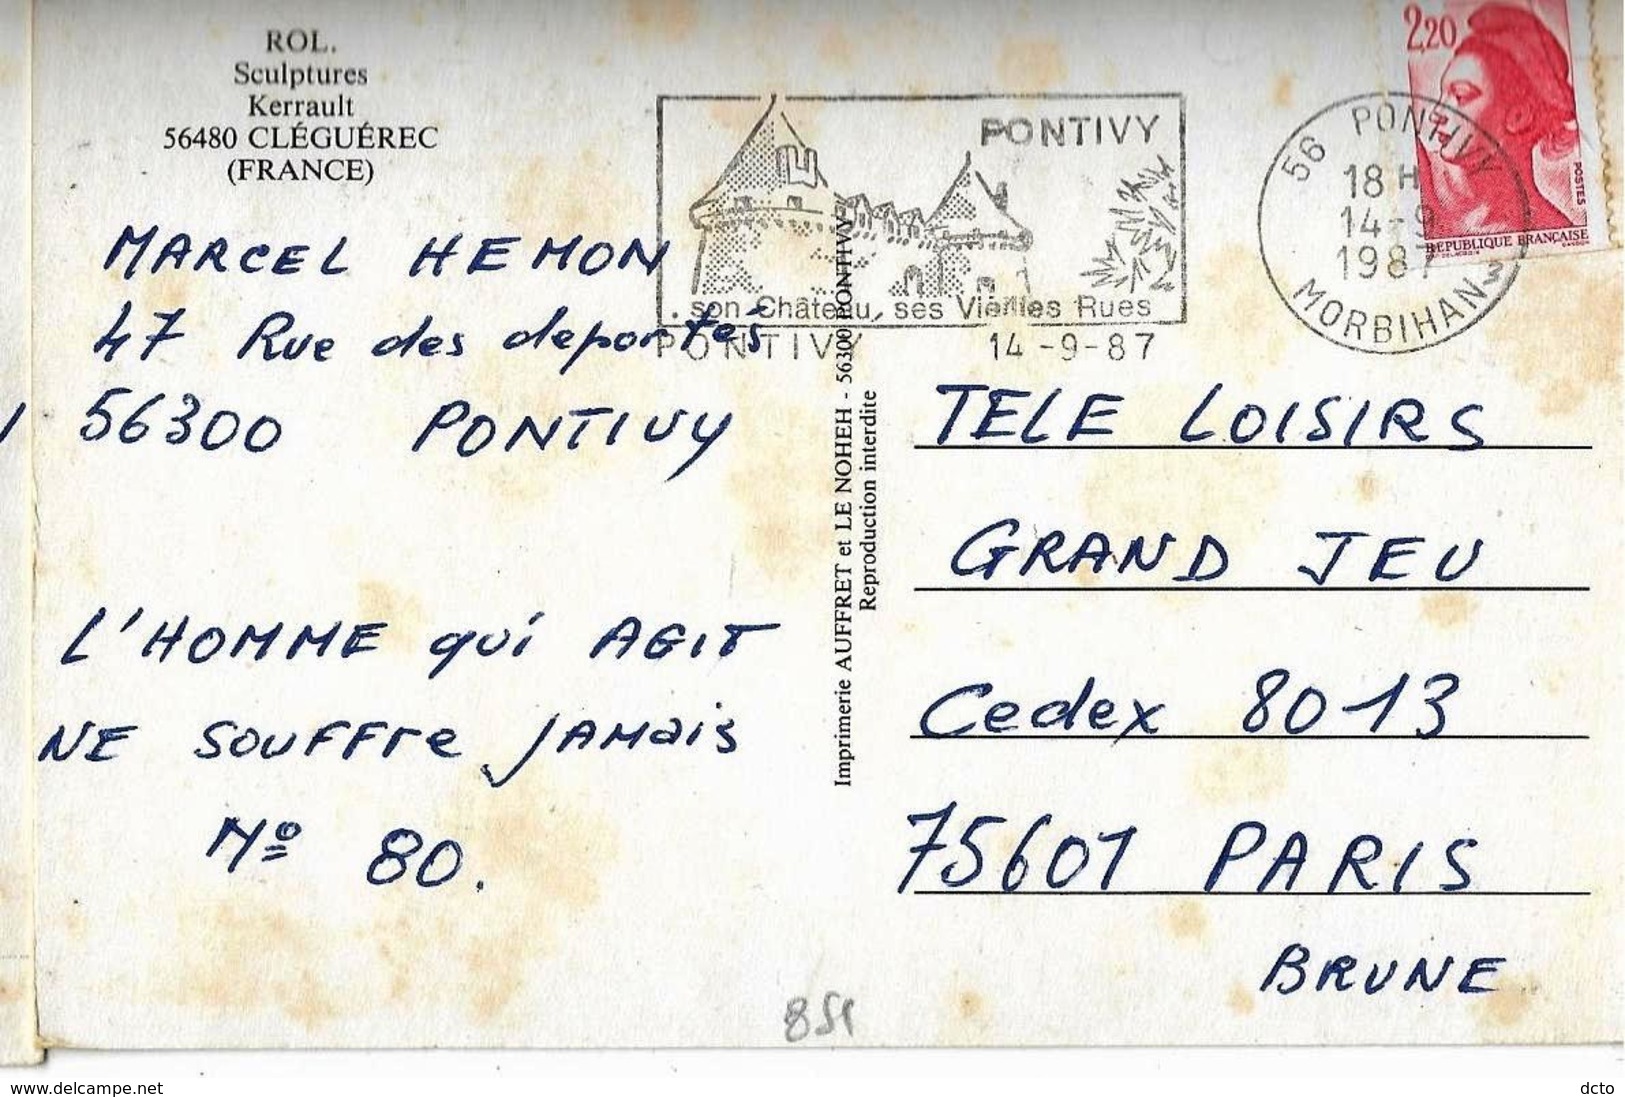 ROL.
Sculptures
Kerrault
56480 CLÉGUÉREC
(FRANCE)
MARCEL HEMON
47 Rue des deportés
56300 PONTIVY
L'HOMME qui AGIT
NE SOUFFre JAMais
Nº 80.
PONTIVY
son Château, ses Vieilles Rues
PONTIVY 14-9-87
56 PONTIVY
18 H
14-9
1987
MORBIHAN
2,20
POSTES
REPUBLIQUE FRANÇAISE
Imprimerie AUFFRET et LE NOHEH - 56300 PONTIVY
Reproduction interdite
TELE LOISIRS
GRAND JEU
Cedex 8013
75601 PARIS
BRUNE
851
www.delcampe.net
dcto